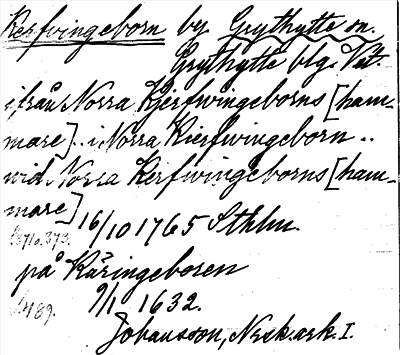 Kerfvingeborn by Grythytte sn.
Grythytte blg. Vstm.
ifrån Norra Kjerfwingeborns [ham-
mare].. i Norra Kierfwingeborn ..
wid Norra Kerfwingeborns [ham-
mare] 16/10 1765 Sthlm.
på Käringeboren
9/1 1632.
Johansson, Nesk.ark. I.